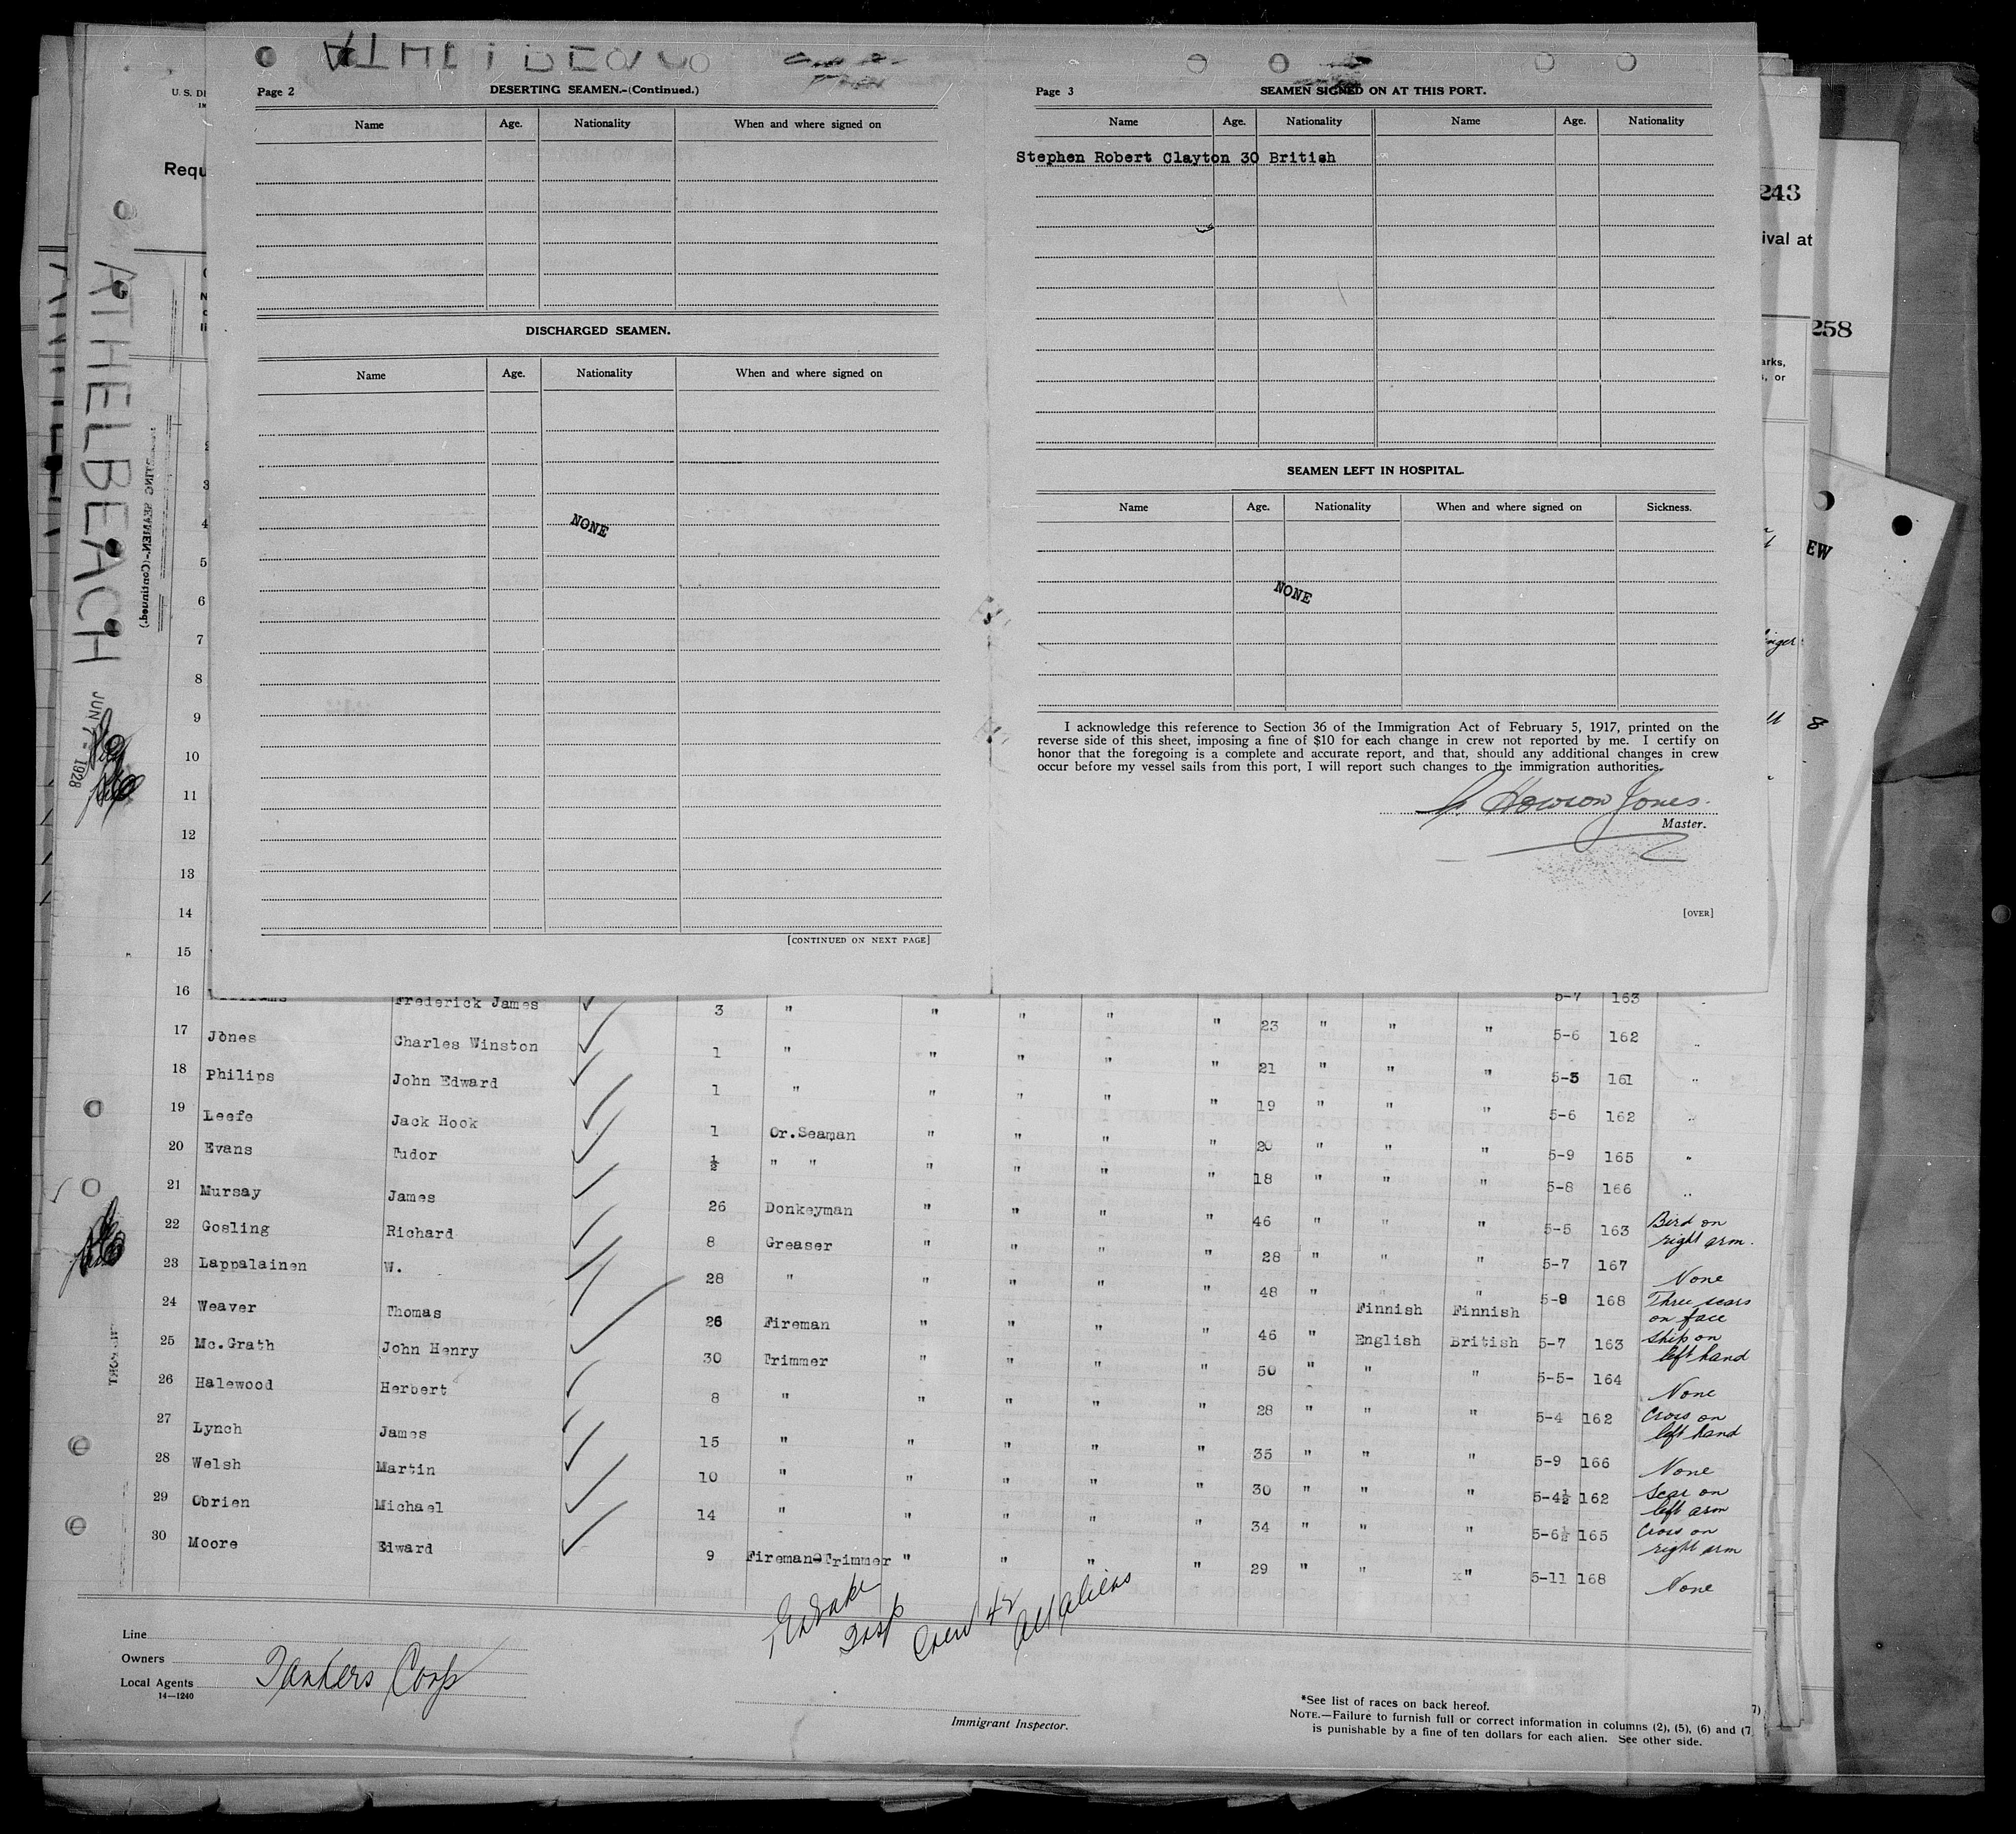 Page 2
DESERTING SEAMEN.-(Continued.)
Name Age. Nationality When and where signed on
DISCHARGED SEAMEN.
Name Age. Nationality When and where signed on
NONE
[CONTINUED ON NEXT PAGE]
Page 3
SEAMEN SIGNED ON AT THIS PORT.
Name Age. Nationality Name Age. Nationality
Stephen Robert Clayton 30 British
SEAMEN LEFT IN HOSPITAL.
Name Age. Nationality When and where signed on Sickness.
NONE
I acknowledge this reference to Section 36 of the Immigration Act of February 5, 1917, printed on the
reverse side of this sheet, imposing a fine of $10 for each change in crew not reported by me. I certify on
honor that the foregoing is a complete and accurate report, and that, should any additional changes in crew
occur before my vessel sails from this port, I will report such changes to the immigration authorities.
Howson Jones.
Master.
[OVER]
U. S. DE
Requ
ATHELBEACH
JUN 7 - 1928
243
ival at
258
arks,
s, or
EW
8
3
4
5
6
7
8
9
10
11
12
13
14
15
16 Frederick James 3 " " " " " 23 " " " 5-7 163
17 Jones Charles Winston 1 " " " " " 21 " " " 5-6 162 "
18 Philips John Edward 1 " " " " " 19 " " " 5-5 161 "
19 Leefe Jack Hook 1 Or.Seaman " " " " 20 " " " 5-6 162 "
20 Evans Tudor ½ " " " " " " 18 " " " 5-9 165 "
21 Mursay James 26 Donkeyman " " " " 46 " " " 5-8 166 "
22 Gosling Richard 8 Greaser " " " " 28 " " " 5-5 163 Bird on
right arm.
23 Lappalainen W. 28 " " " " " 48 " Finnish Finnish 5-7 167 None
24 Weaver Thomas 26 Fireman " " " " 46 " English British 5-9 168 Three scars
on face
25 Mc.Grath John Henry 30 Trimmer " " " " 50 " " " 5-7 163 Ship on
left hand
26 Halewood Herbert 8 " " " " " 28 " " " 5-5- 164 None
27 Lynch James 15 " " " " " 35 " " " 5-4 162 Cross on
left hand
28 Welsh Martin 10 " " " " " 30 " " " 5-9 166 None
29 Obrien Michael 14 " " " " " 34 " " " 5-4½ 162 Scar on
left arm
30 Moore Edward 9 Fireman-Trimmer " " " " 29 " " x" 5-6½ 165 Cross on
right arm
5-11 168 None
Insp
Crew 42
All Aliens
Line
Owners
Local Agents
14—1240
Tankers Corp
Immigrant Inspector.
*See list of races on back hereof.
NOTE.—Failure to furnish full or correct information in columns (2), (5), (6) and (7
is punishable by a fine of ten dollars for each alien. See other side.
7)